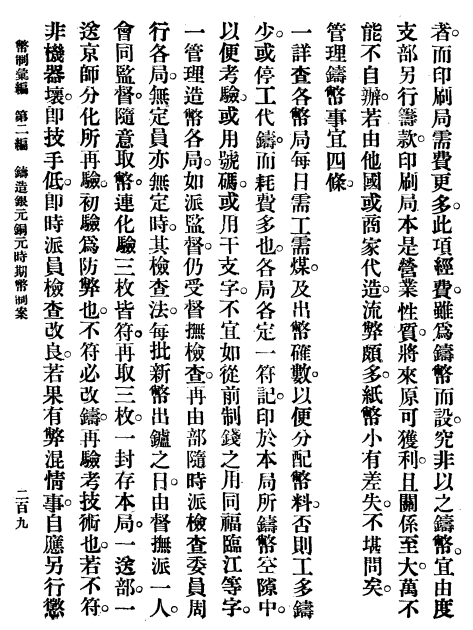 者。而印刷局需費更多。此項經費。雖爲鑄幣而設。究非以之鑄幣。宜由度
支部另行籌款。印刷局本是營業性質。將來原可獲利。且關係至大。萬不
能不自辦。若由他國或商家代造。流弊頗多。紙幣小有差失。不堪問矣。
管理鑄幣事宜四條。
一詳查各幣局每日需工需煤。及出幣確數。以便分配幣料。否則工多鑄
少。或停工代鑄。而耗費多也。各局各定一符記。印於本局所鑄幣空隙中。
以便考驗。或用號碼。或用干支字。不宜如從前制錢之用同福臨江等字。
一管理造幣各局。如派監督仍受督撫檢查。再由部隨時派檢查委員周
行各局。無定員亦無定時。其檢查法。每批新幣出鑪之日。由督撫派一人。
會同監督。隨意取幣。連化驗三枚皆符。再取三枚。一封存本局。一送部。一
送京師分化所再驗。初驗爲防弊也。不符必改鑄。再驗考技術也。若不符。
非機器壞。卽技手低。卽時派員檢查改良。若果有弊混情事。自應另行懲
幣制彙編　第二編　鑄造銀元銅元時期幣制案　二百九